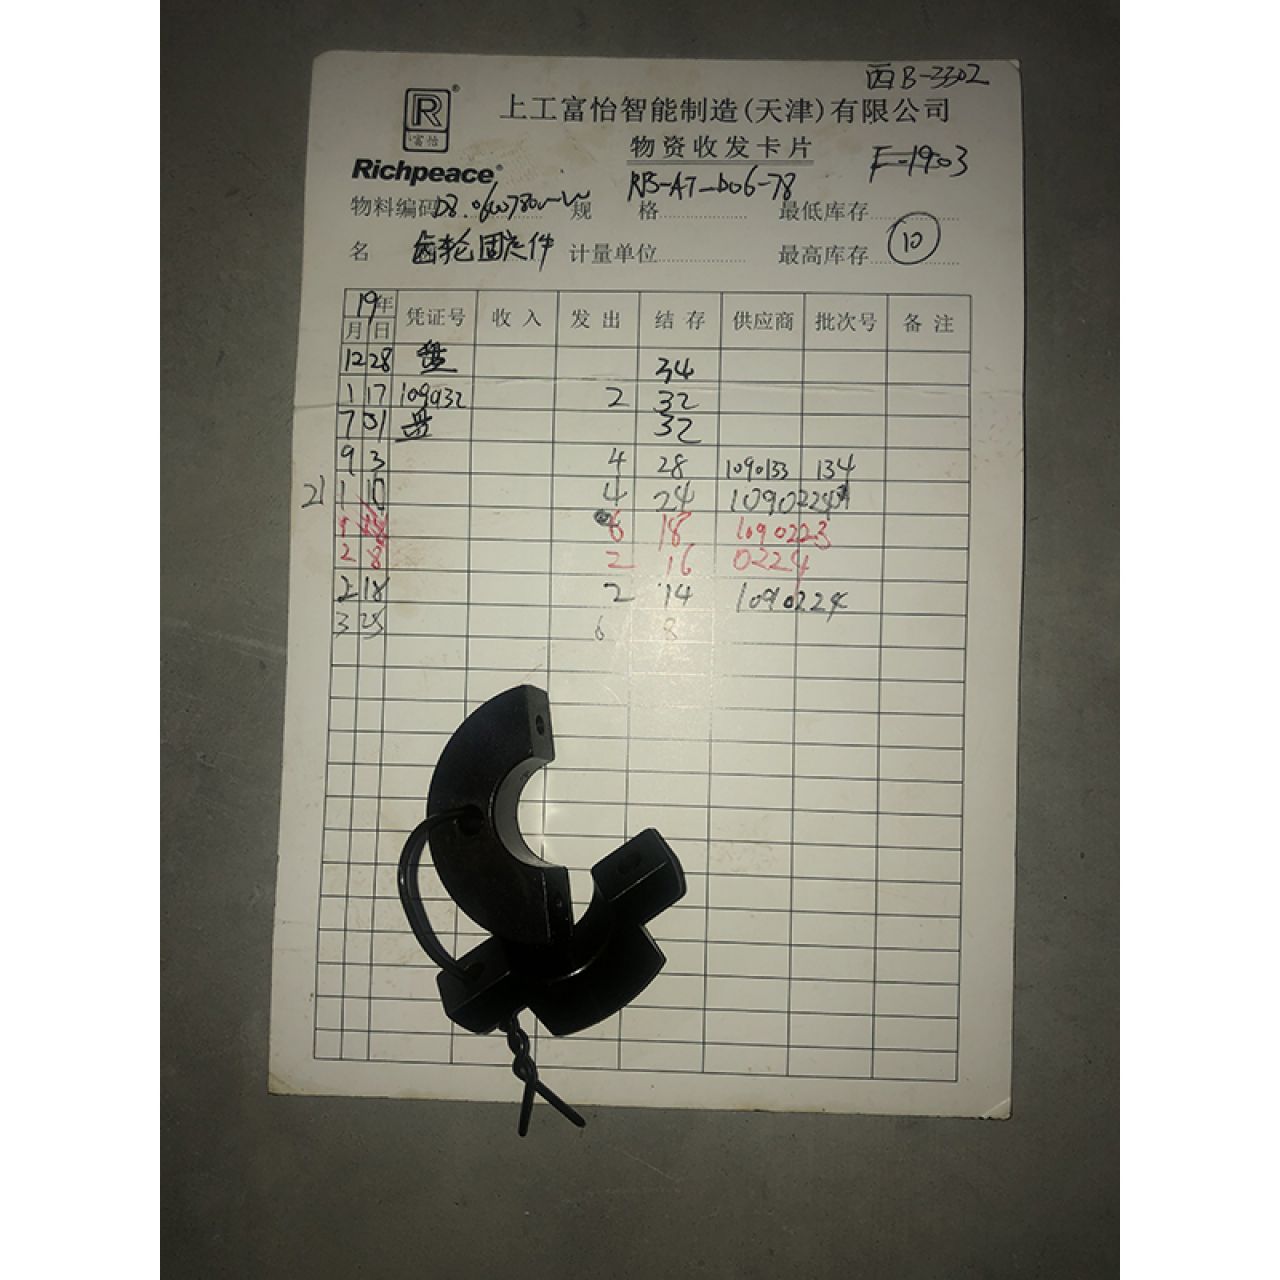 西B-3302
R®
富怡
上工富怡智能制造(天津)有限公司
物资收发卡片
F-1903
Richpeace®
RB-AT-D06-78
物料编码 规 格 最低库存
名 齿轮固定件 计量单位 最高库存 10
19年 凭证号 收入 发出 结存 供应商 批次号 备注
月 日
12 28 盘 34
1 17 109032 2 32
7 31 盘 32
9 3 4 28 1090133 134
21 1 10 4 24
1 6 18 1090223
2 8 2 16 0224
2 18 2 14 1090224
3 25 6 8